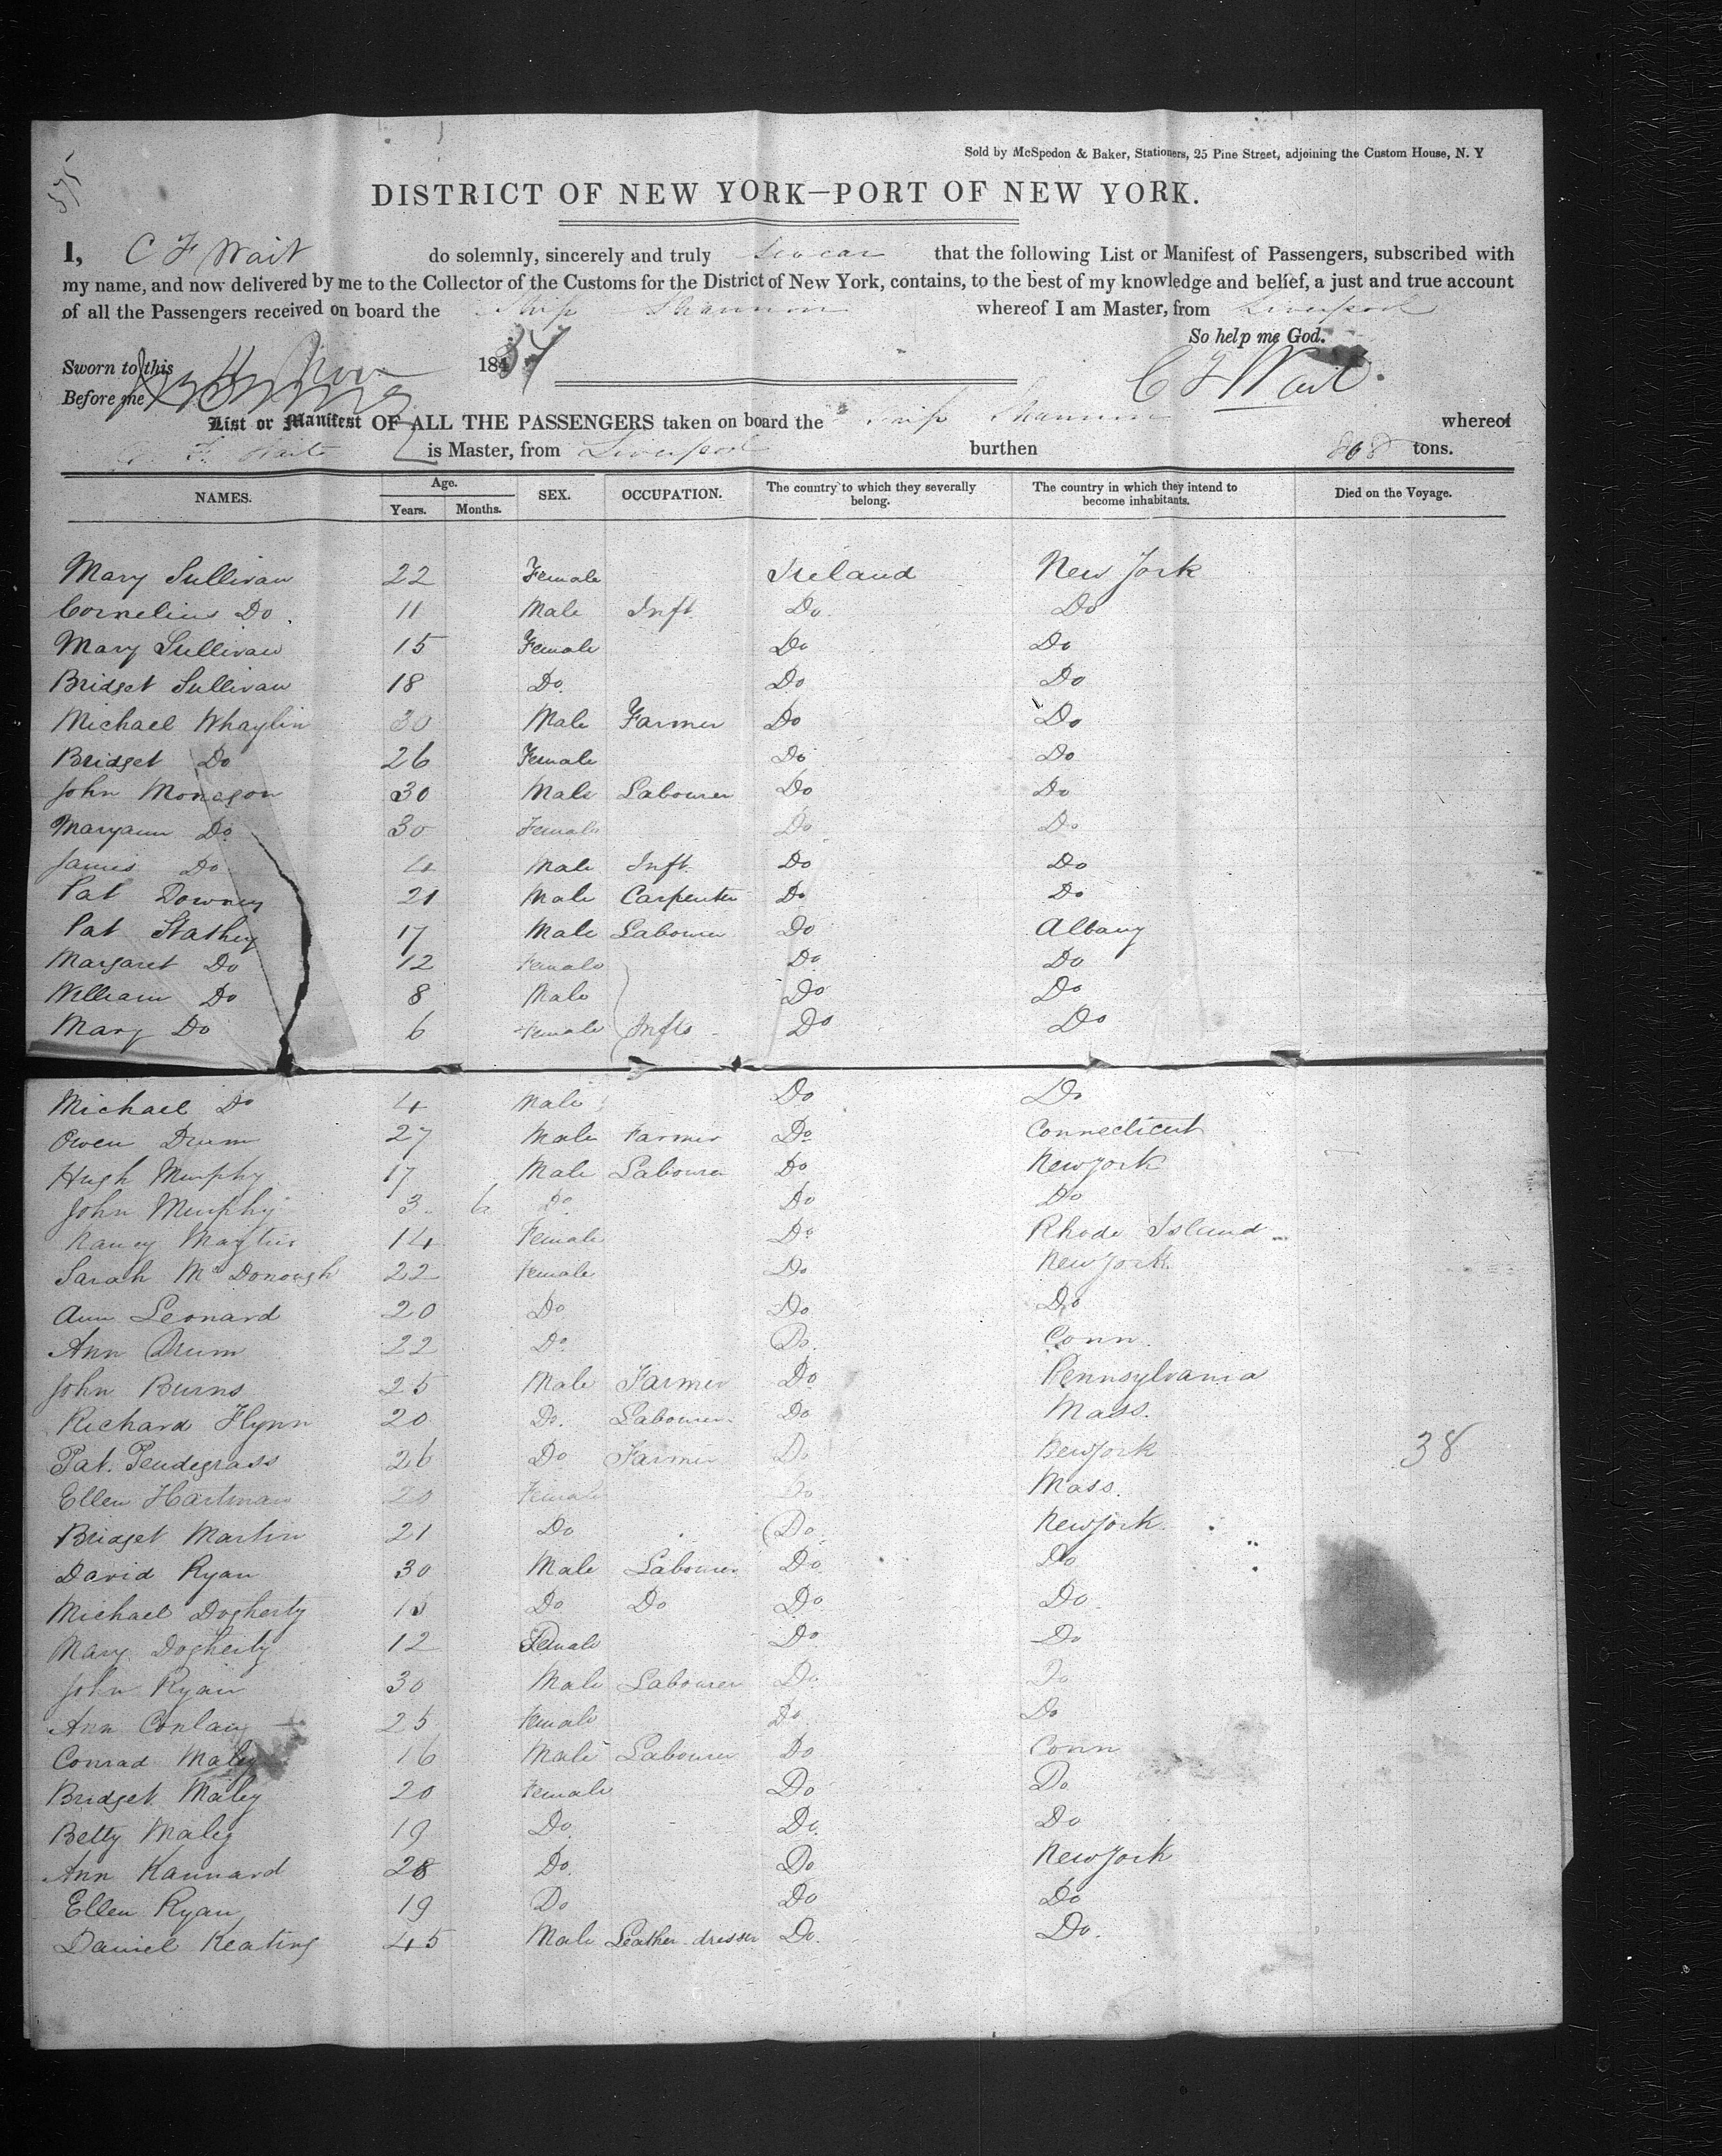 Sold by McSpedon & Baker, Stationers, 25 Pine Street, adjoining the Custom House, N. Y
575
DISTRICT OF NEW YORK—PORT OF NEW YORK.
I, C F Wait do solemnly, sincerely and truly swear that the following List or Manifest of Passengers, subscribed with
my name, and now delivered by me to the Collector of the Customs for the District of New York, contains, to the best of my knowledge and belief, a just and true account
of all the Passengers received on board the Ship Shannon whereof I am Master, from Liverpool
So help me God.
Sworn to this Nov 184
Before me
C F Wait.
List or Manifest OF ALL THE PASSENGERS taken on board the Ship Shannon whereof
F. Waite is Master, from Liverpool burthen 868 tons.
NAMES. Age. Years. Months. SEX. OCCUPATION. The country to which they severally belong. The country in which they intend to become inhabitants. Died on the Voyage.
Mary Sullivan 22 Female Ireland New York
Cornelius Do. 11 Male Inft. Do. Do
Mary Sullivan 15 Female Do Do
Bridget Sullivan 18 Do. Do Do
Michael Whaylin 30 Male Farmer Do Do
Bridget Do 26 Female Do Do
John Monegon 30 Male Labourer Do Do
Maryann Do 30 Female Do Do
James Do 4 Male Inft. Do Do
Pat Downey 21 Male Carpenter Do Do
Pat Stathey 17 Male Labourer Do Albany
Margaret Do 12 Female Do Do
William Do 8 Male Do Do
Mary Do 6 Female Infts Do Do
Michael Do 4 Male Do Do
Owen Drum 27 Male Farmer Do Connecticut
Hugh Murphy 17 Male Labourer Do New York
John Murphy 3 6 Do Do Do
Nancy 14 Female Do Rhode Island
Sarah McDonough 22 Female Do New York
Ann Leonard 20 Do Do Do
Ann Drum 22 Do Do. Conn.
John Burns 25 Male Farmer Do Pennsylvania
Richard Flynn 20 Do. Labourer Do Mass.
Pat. Pendegrass 26 Do Farmer Do New York 38
Ellen Hartman 20 Female Do Mass.
Bridget Martin 21 Do Do New York
David Ryan 30 Male Labourer Do Do
Michael Dogherty Do Do Do Do.
Mary Dogherty 12 Female Do Do
John Ryan 30 Male Labourer Do Do
Ann Conlan 25 Female Do Do
Conrad Maley 16 Male Labourer Do Conn
Bridget Maley 20 Female Do Do
Betty Maley 19 Do Do. Do
Ann Kannard 28 Do. Do New York
Ellen Ryan 19 Do Do Do
Daniel Keating 45 Male Leather dresser Do. Do.